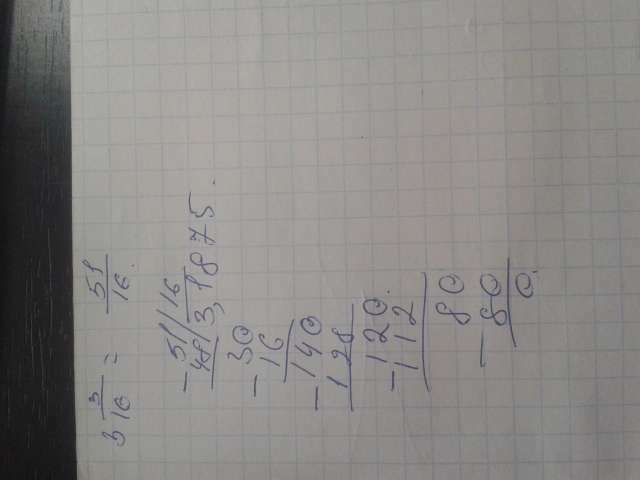 3 3/16 = 51/16.
- 51 | 16
48 | 3,1875.
- 30
16
- 140
128
- 120.
112
80
- 80
0.